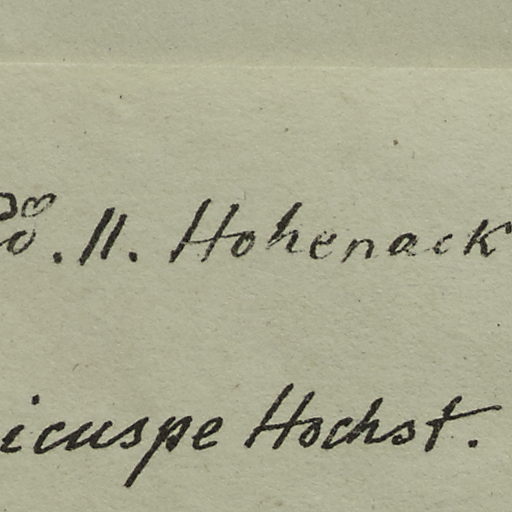 . 11. Hohenack
icuspe Hochst.